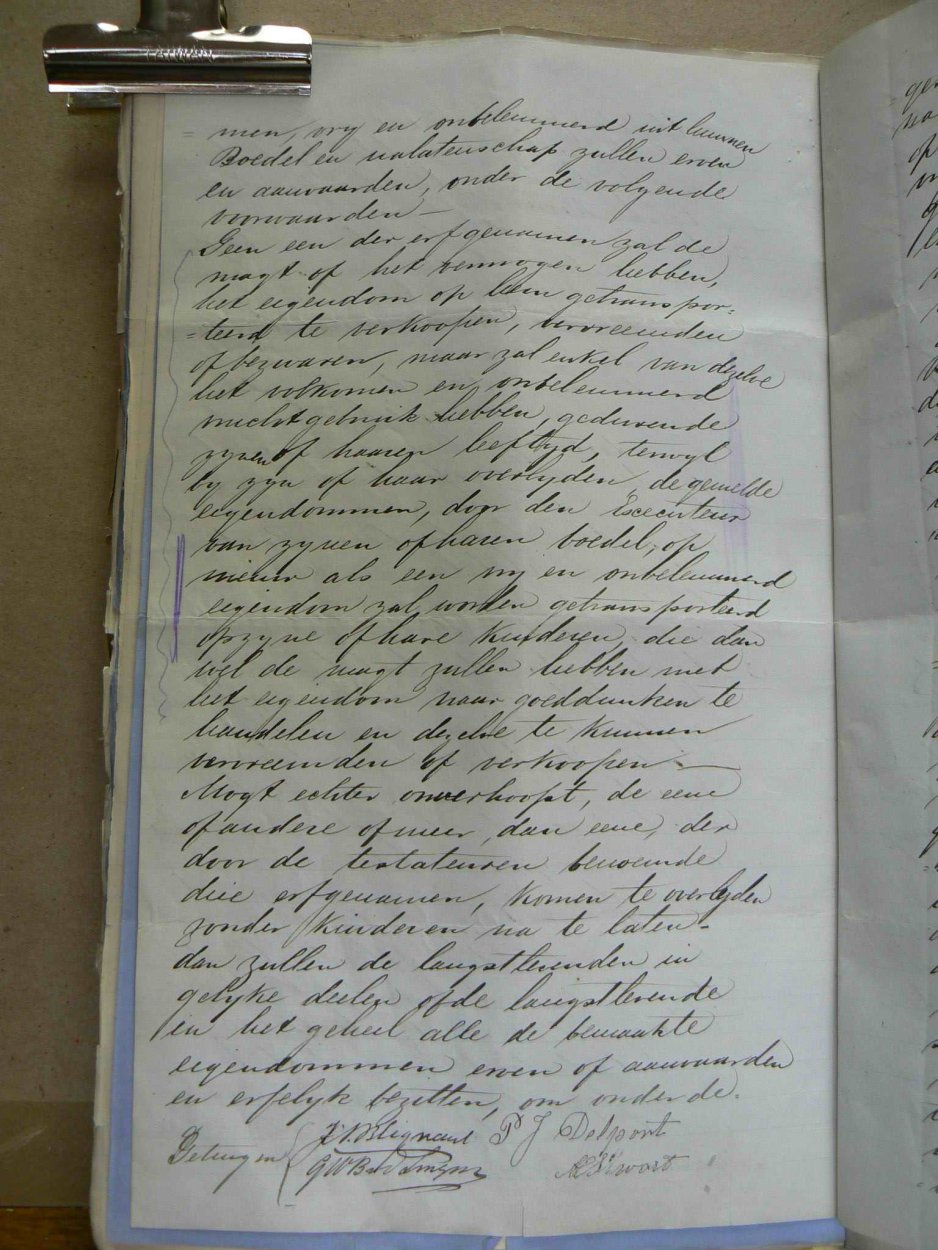 = men, vry en onbelemmerd uit hunnen
Boedel en nalatenschap zullen erven
en aanvaarden, onder de volgende
voorwaarden —
Geen een der erfgenamen zal de
magt of het vermogen hebben,
het eigendom op hem getranspor-
=teerd te verkoopen, vervreemden
of bezwaren, maar zal enkel van dezelve
het volkomen en onbelemmerd
vruchtgebruik hebben, gedurende
zynen of haaren leeftyd, terwyl
by zyn of haar overlyden de gemelde
eigendommen, door den Executeur
van zynen of haren boedel, op
nieuw als een vry en onbelemmerd
eigendom zal worden getransporteerd
op zyne of hare kinderen, die dan
wel de magt zullen hebben met
het eigendom naar goeddunken te
handelen en dezelve te kunnen
vervreemden of verkoopen —
Mogt echter onverhoopt, de eene
of andere of meer dan eene, der
door de testateuren benoemde
drie erfgenamen, komen te overlyden
zonder kinderen na te laten -
dan zullen de langstlevenden in
gelyke deelen of de langstlevende
in het geheel alle de bemaakte
eigendommen erven of aanvaarden
en erfelyk bezitten, om onder de.
Getuigen { Blignaut P J Delport